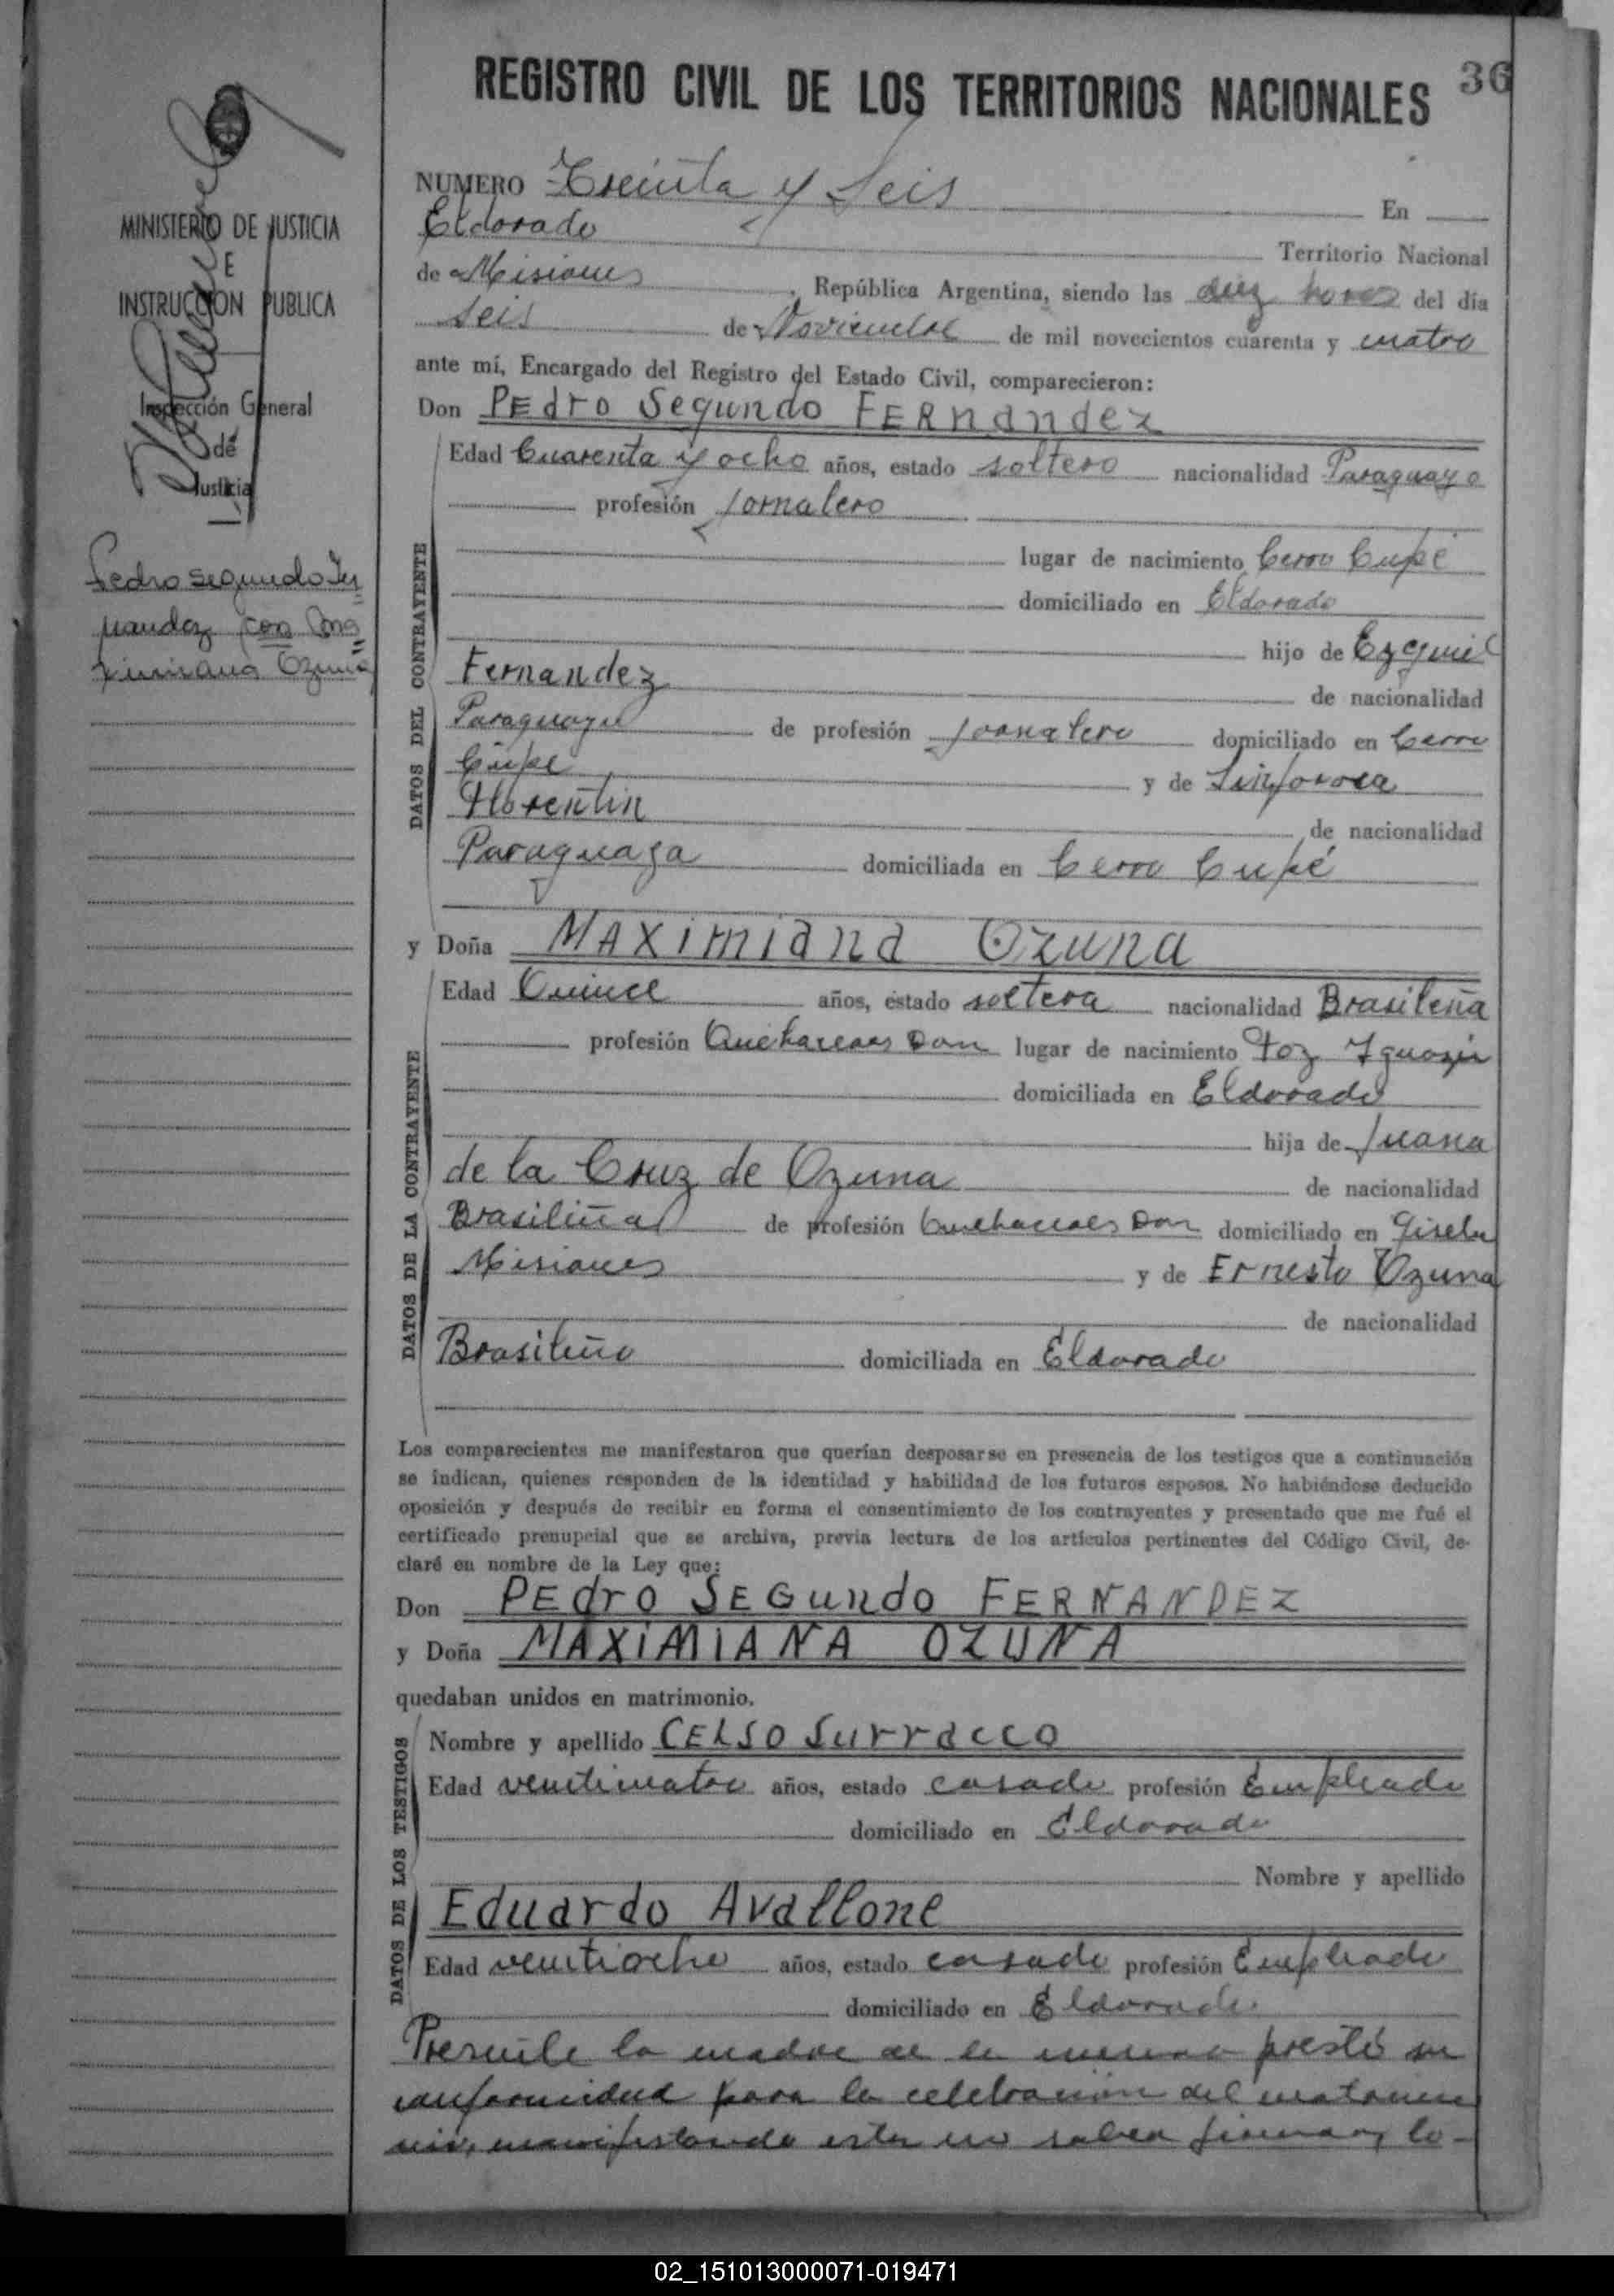 36
REGISTRO CIVIL DE LOS TERRITORIOS NACIONALES
MINISTERIO DE JUSTICIA
E
INSTRUCCION PUBLICA
Inspección General
de
Justicia
Pedro segundo Fer
nandez con Ma
ximiana Ozuna
NUMERO Treinta y Seis En
Eldorado Territorio Nacional
de Misiones, República Argentina, siendo las diez horas del día
seis de Noviembre de mil novecientos cuarenta y cuatro
ante mí, Encargado del Registro del Estado Civil, comparecieron:
Don PEdro Segundo FERnandez
DATOS DEL CONTRAYENTE
Edad Cuarenta y ocho años, estado soltero nacionalidad Paraguayo
profesión Jornalero
lugar de nacimiento Cerro Cupé
domiciliado en Eldorado
hijo de Ezequiel
Fernandez de nacionalidad
Paraguayo de profesión Jornalero domiciliado en Cerro
Cupe y de Sinforosa
Florentin de nacionalidad
Paraguaya domiciliada en Cerro Cupé
y Doña MAXimiana Ozuna
DATOS DE LA CONTRAYENTE
Edad Quince años, estado soltera nacionalidad Brasileña
profesión Quehaceres Dom lugar de nacimiento Foz Iguazu
domiciliada en Eldorado
hija de Juana
de la Cruz de Ozuna de nacionalidad
Brasileña de profesión Quehaceres Dom domiciliado en Gisela
Misiones y de Ernesto Ozuna
de nacionalidad
Brasileño domiciliada en Eldorado
Los comparecientes me manifestaron que querían desposarse en presencia de los testigos que a continuación
se indican, quienes responden de la identidad y habilidad de los futuros esposos. No habiéndose deducido
oposición y después de recibir en forma el consentimiento de los contrayentes y presentado que me fué el
certificado prenupcial que se archiva, previa lectura de los artículos pertinentes del Código Civil, de-
claré en nombre de la Ley que:
Don PEdro SEGundo FERNANDEZ
y Doña MAXiMIANA OZUNA
quedaban unidos en matrimonio.
DATOS DE LOS TESTIGOS
Nombre y apellido CELSO Surracco
Edad veinticuatro años, estado casado profesión Empleado
domiciliado en Eldorado
Nombre y apellido
Eduardo Avallone
Edad veintiocho años, estado casado profesión Empleado
domiciliado en Eldorado
Presente la madre de la menor prestó su
conformidad para la celebración del matrimo
nio, manifestando esta no saber firmar, lo-
02_151013000071-019471